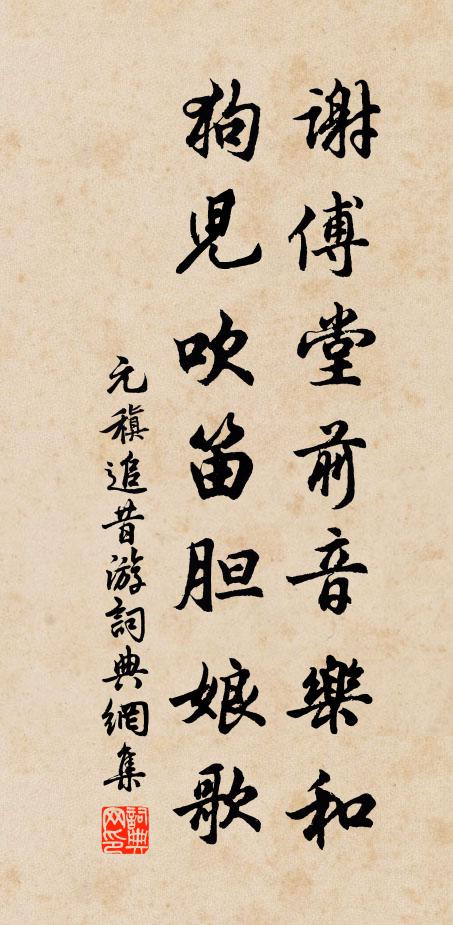 谢傅堂前音樂和
狗児吹笛胆娘歌
元稹追昔游詞典網集
詞典网印